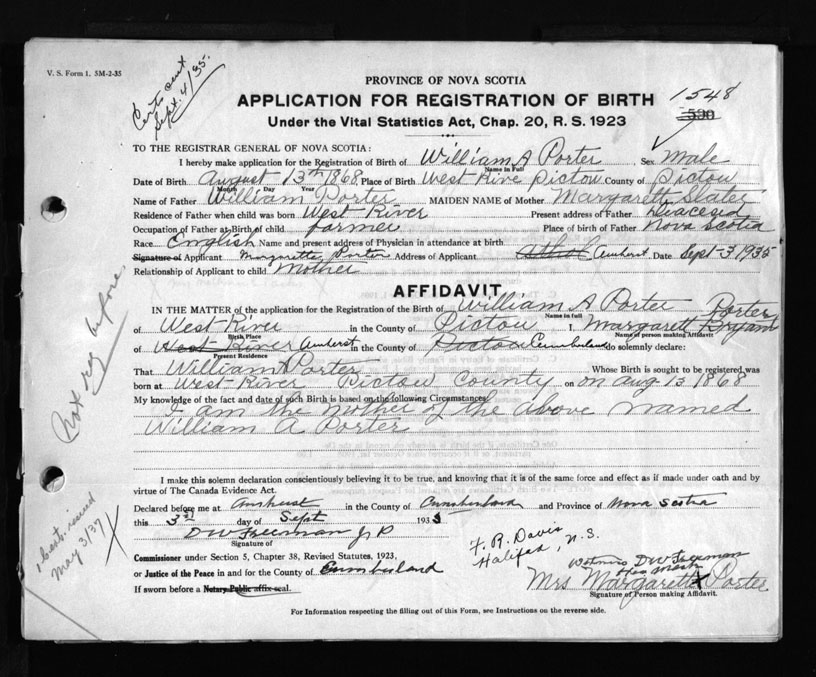 V. S. Form 1. 5M-2-35
Certs sent
Sept. 4/35.
PROVINCE OF NOVA SCOTIA
APPLICATION FOR REGISTRATION OF BIRTH
1548
Under the Vital Statistics Act, Chap. 20, R. S. 1923
TO THE REGISTRAR GENERAL OF NOVA SCOTIA:
I hereby make application for the Registration of Birth of William A Porter Sex Male
Name in Full
Date of Birth August 13th 1868 Place of Birth West Rive Pictou County of Pictou
Month Day Year
Name of Father William Porter MAIDEN NAME of Mother Margarett Slater
Residence of Father when child was born West River Present address of Father Deacesed
Occupation of Father at Birth of child farmer Place of birth of Father Nova Scotia
Race English Name and present address of Physician in attendance at birth
Signature of Applicant Margarette Porter Address of Applicant Athol Amherst Date Sept-3 1935
Relationship of Applicant to child Mother
AFFIDAVIT
IN THE MATTER of the application for the Registration of the Birth of William A Porter
Name in full
Porter
of West River in the County of Pictou I, Margarett Bryan
Birth Place
Name of person making Affidavit
of West River Amherst in the County of Pictou Cumberland do solemnly declare:
Present Residence
That William Porter Whose Birth is sought to be registered was
born at West River Pictou County on on Aug 13 1868
My knowledge of the fact and date of such Birth is based on the following Circumstances:
I am the mother of the above named
William A Porter
I make this solemn declaration conscientiously believing it to be true, and knowing that it is of the same force and effect as if made under oath and by
virtue of The Canada Evidence Act.
Declared before me at Amherst in the County of Cumberland and Province of Nova Scotia
this 3rd day of Sept 1935
D W Freeman J P
Signature of
Commissioner under Section 5, Chapter 38, Revised Statutes, 1923,
or Justice of the Peace in and for the County of Cumberland
If sworn before a Notary Public affix seal.
F. R. Davis
Halifax, N.S.
Witness D W Freeman
Her mark
Mrs Margarett X Porter
Signature of Person making Affidavit.
For Information respecting the filling out of this Form, see Instructions on the reverse side.
Not reg before
cert. issued
May 3/37
X